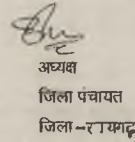 अध्यक्ष
जिला पंचायत
जिला-रायगढ़